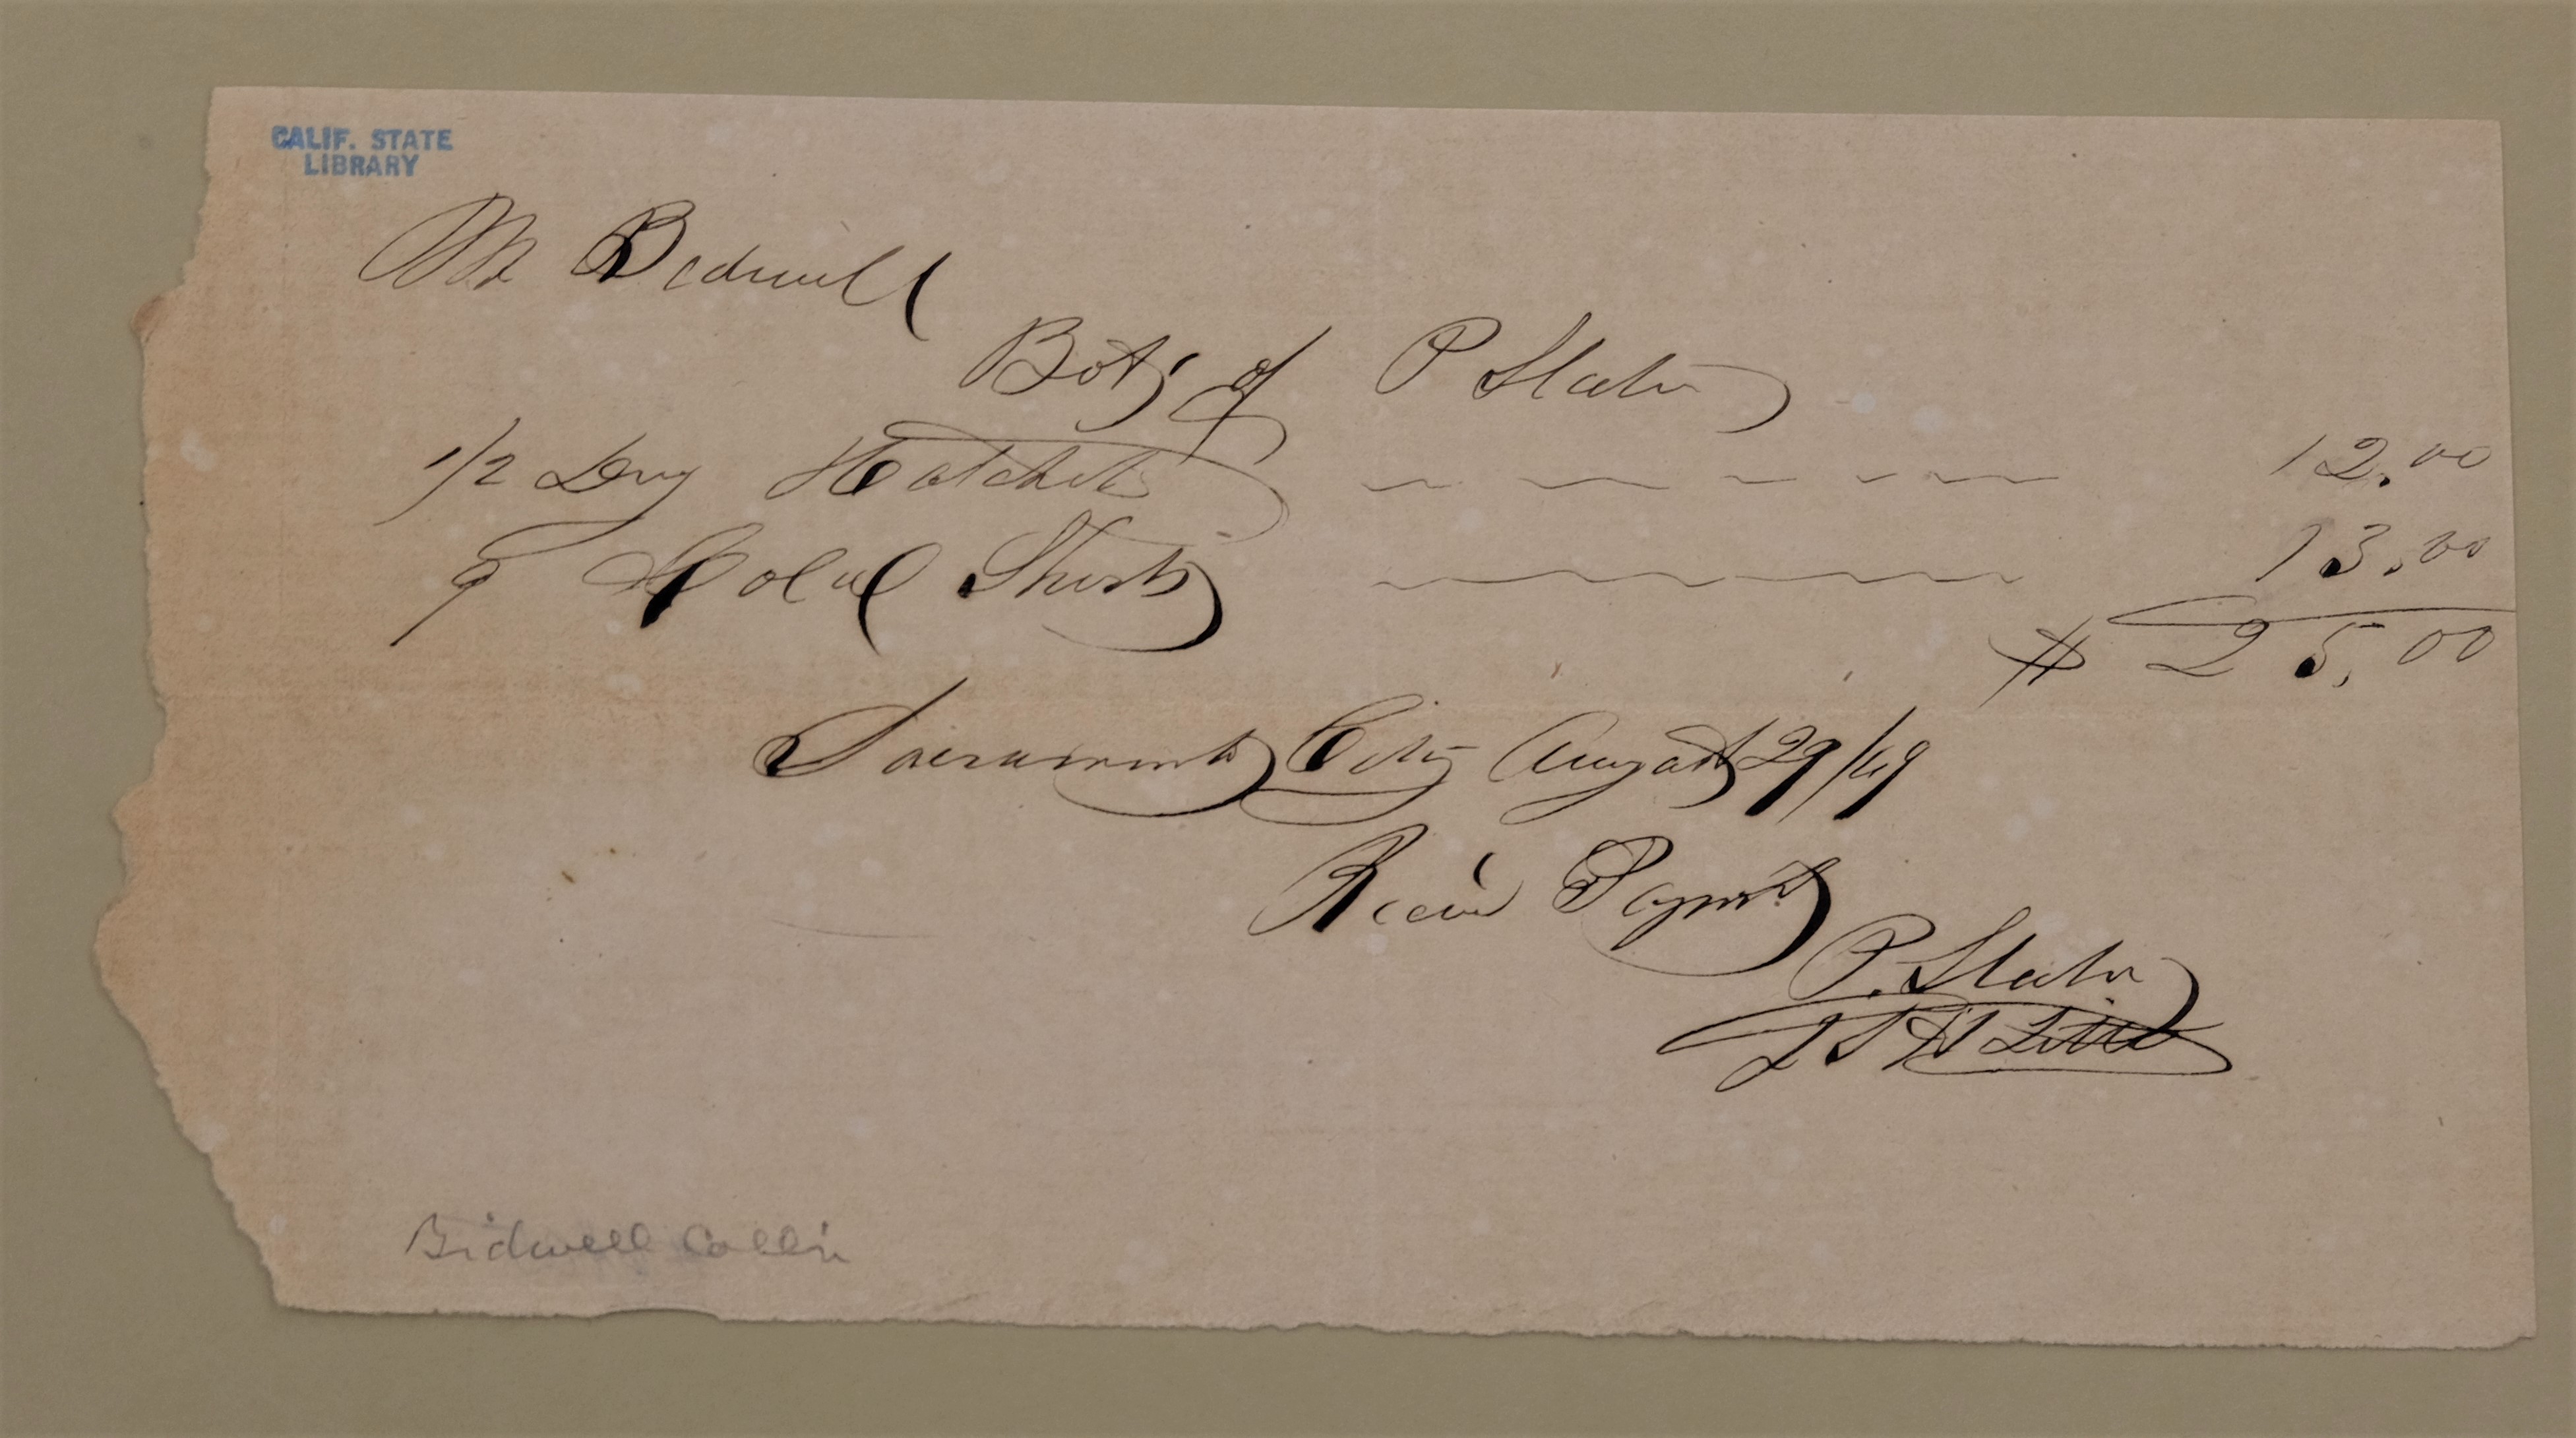 CALIF. STATE
LIBRARY
Mr Bidwell
Bot. of P Slater
1/2 Doz Hatchets 12.00
9 Shirts 13.00
$ 25.00
Sacramento City August 29/49
Recd Paymt
P. Slater
Bidwell Coll'n